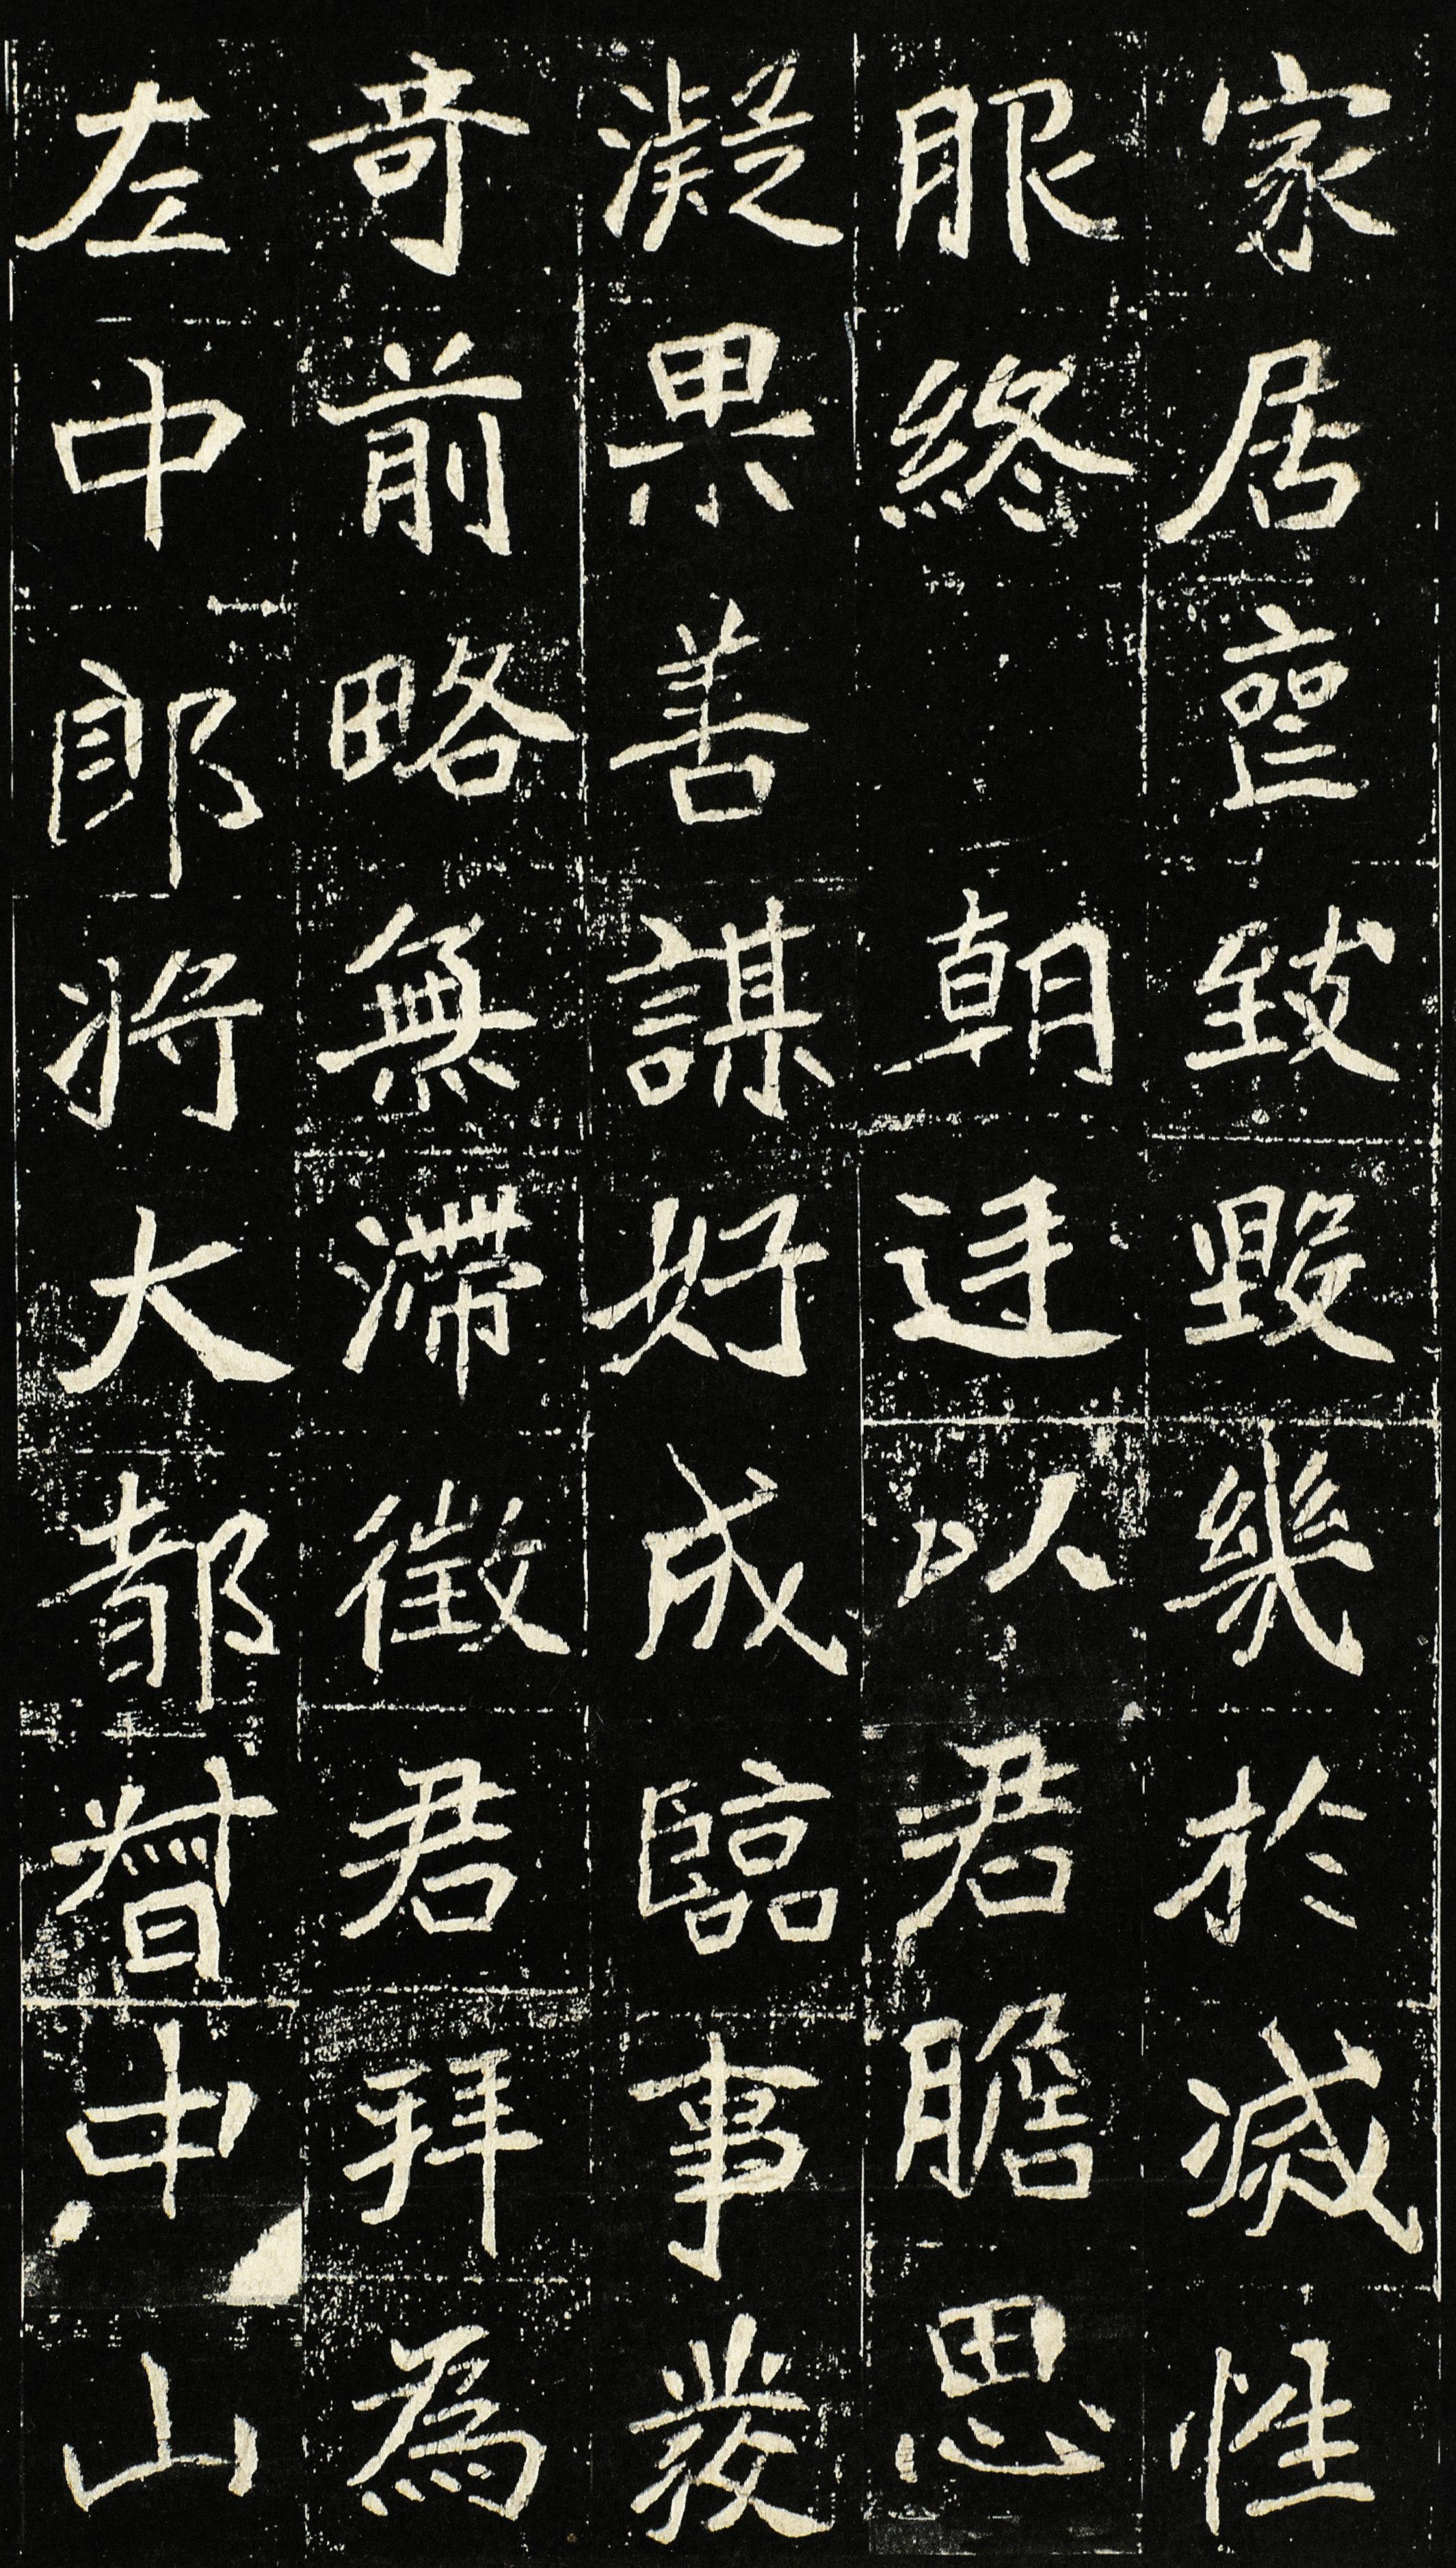 家居㽵致毀幾於滅性
服終 朝廷以君膽思
凝果善謀好成臨事發
奇前略無滯徵君拜為
左中郎將大都督中山